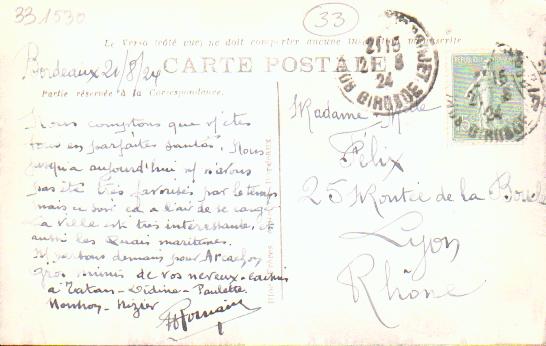 33 1530
33
Le Verso (côté vue) ne doit comporter aucune
Bordeaux 21/8/24
CARTE POSTALE
Partie réservée à la Correspondance.
Nous comptons que v/ êtes
tous en parfaite santé. Nous
jusqu'à aujourd'hui n/ n'avons
pas été très favorisés par le temps
mais ce soir ça a l'air de se ranger
La ville est très intéressante, et
aussi les Quais maritimes.
N/ partons demain pour Arcachon
gros mimis de vos neveux
à Tatan - Didine - Paulette
Romain
Madame
Félix
25 Montée de la
Lyon
Rhône
21 15
21 8
24
GIRONDE